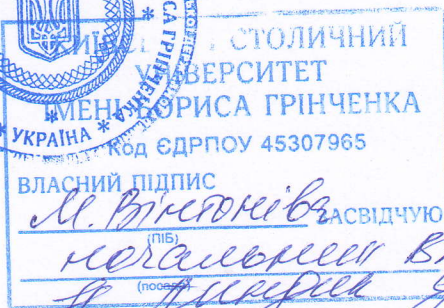 СА ГРІНЧЕНКА
УКРАЇНА *
КИЇВС СТОЛИЧНИЙ
УНІВЕРСИТЕТ
ІМЕНІ БОРИСА ГРІНЧЕНКА
Код ЄДРПОУ 45307965
ВЛАСНИЙ ПІДПИС
М. Вінтоніва ЗАСВІДЧУЮ
(ПІБ)
начальник В
(посада)